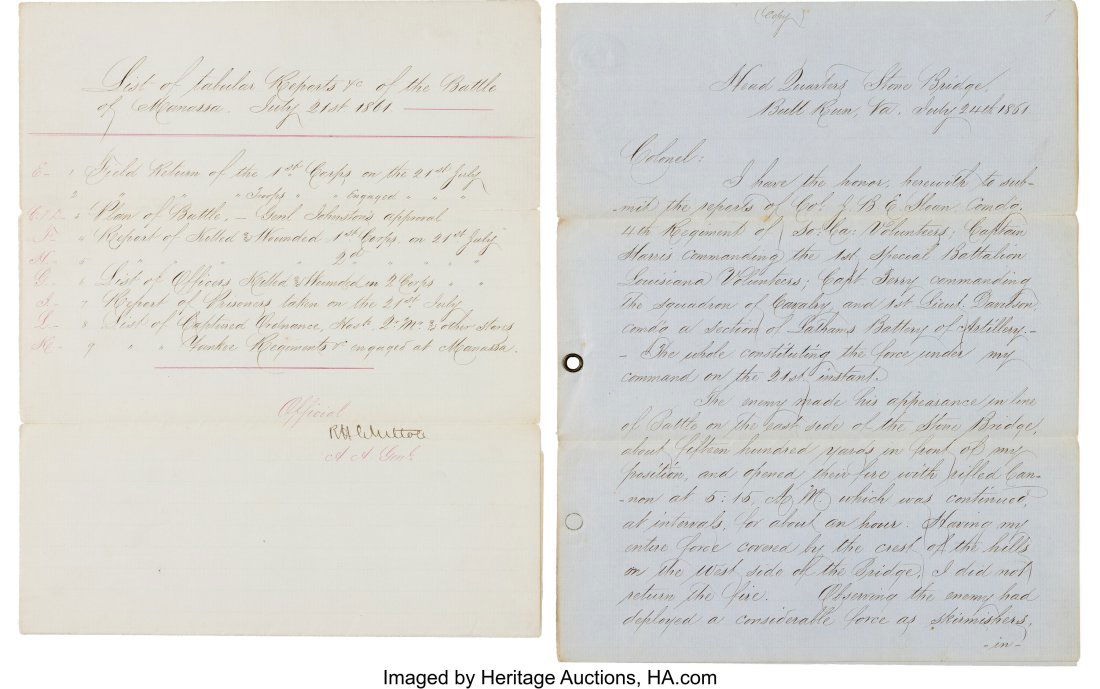 List of tabular Reports &c of the Battle
of Manassa. July 21st 1861
E- 1 Field Return of the 1st Corps on the 21st July
2 " " " " Troops " Engaged " " "
3 Plan of Battle. - Genl Johnston's approval
F- 4 Report of Killed & Wounded 1st Corps. on 21st July
M- 5 " " " 2d " " " "
G- 6 List of Officers Killed & Wounded in 2 Corps " "
I- 7 Report of Prisoners taken on the 21st July
L- 8 List of Captured Ordnance, Hospl. Qr. Mr. & other Stores
K- 9 " " Yankee Regiments &c engaged at Manassa.
Official
A A Genl
(Copy)
1
Head Quarters Stone Bridge,
Bull Run, Va. July 24th 1861
Colonel:
I have the honor, herewith to sub-
-mit the reports of Col. J. B. E. Sloan comdg.
4th Regiment of So: Ca: Volunteers; Captain
Harris commanding the 1st Special Battalion
Louisiana Volunteers; Capt Terry commanding
the squadron of Cavalry, and 1st Lieut. Davidson,
comdg a Section of Lathams Battery of Artillery.-
- The whole constituting the force under my
command on the 21st instant.
The enemy made his appearance in line
of Battle on the east side of the Stone Bridge,
about fifteen hundred yards in front of my
position, and opened their fire with rifled Can-
-non at 5:15 A.M. which was continued,
at intervals, for about an hour. Having my
entire force covered by the crest of the hills
on the west side of the Bridge, I did not
return the fire. Observing the enemy had
deployed a considerable force as skirmishers,
-in-
Imaged by Heritage Auctions, HA.com